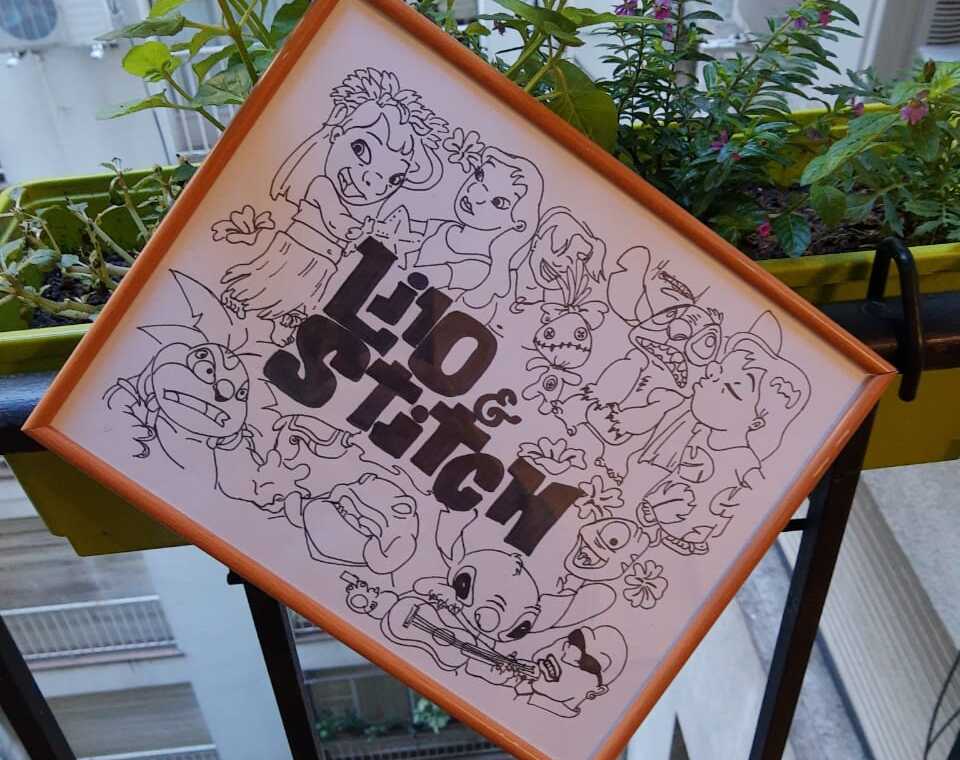 Lilo
&
Stitch